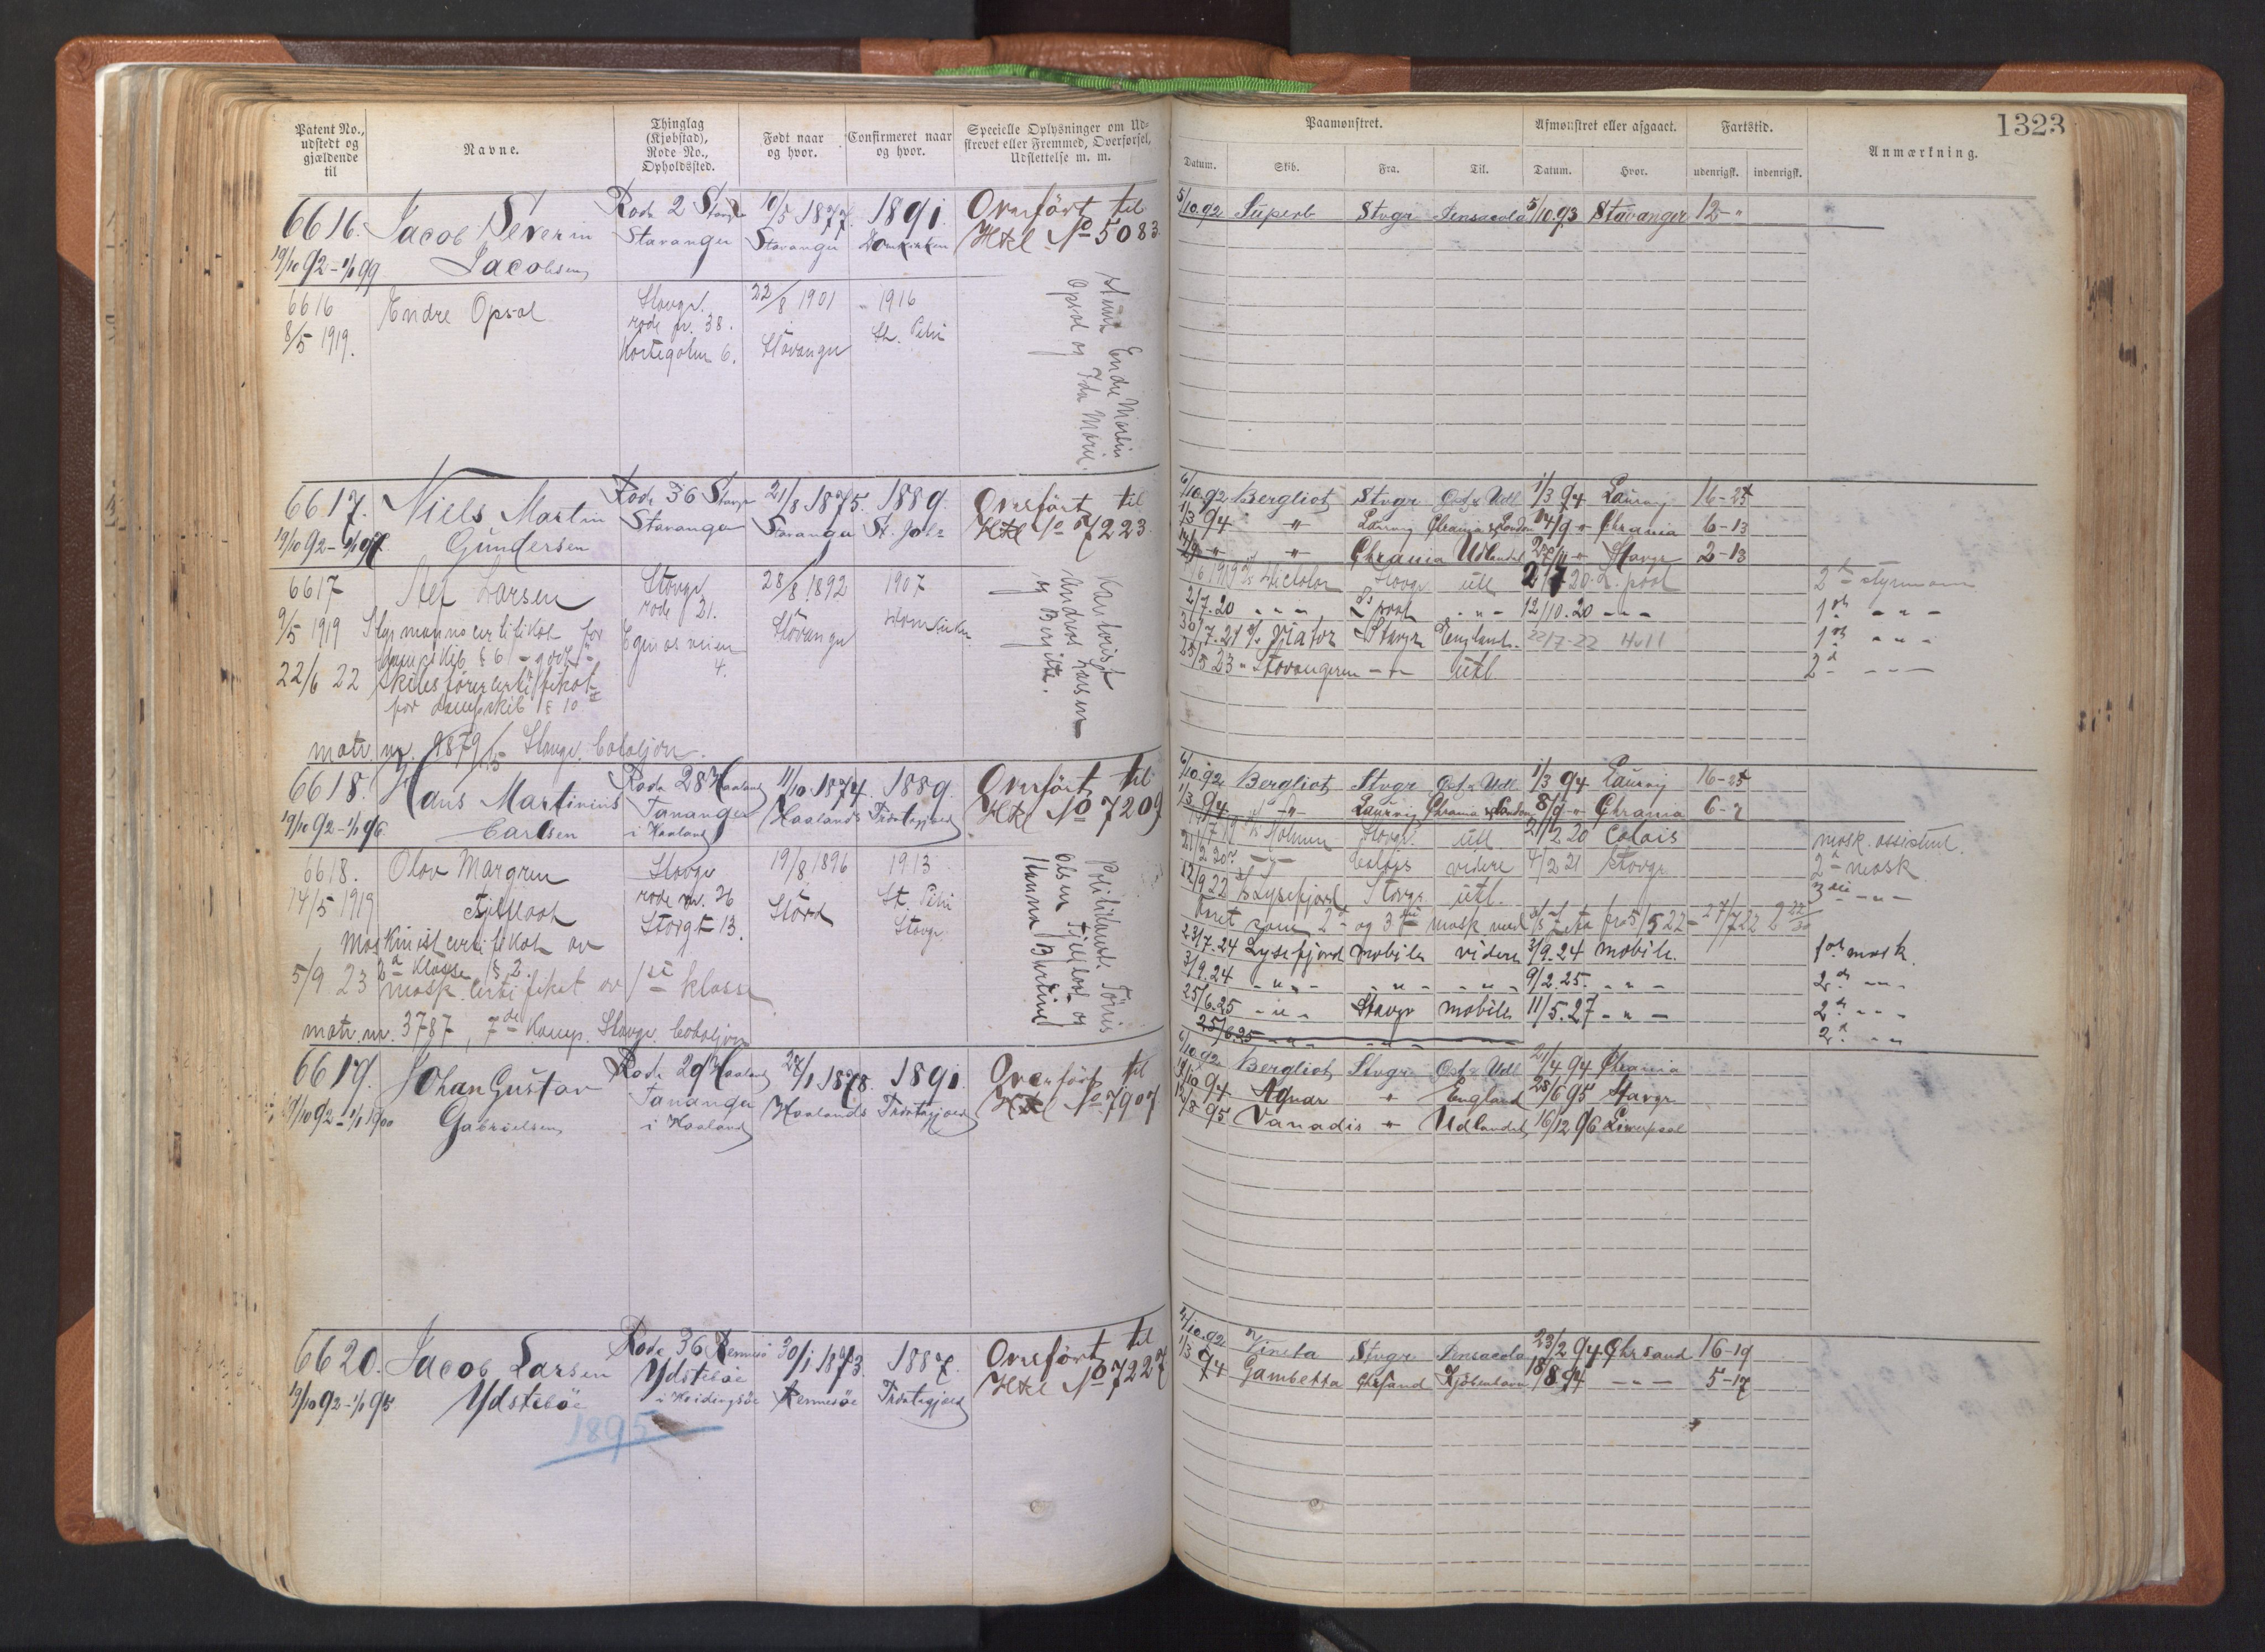 1323
Patent No., udstedt og gjældende til
Navne.
Thinglag (Kjøbstad), Rode No., Opholdssted.
Født naar og hvor.
Confirmeret naar og hvor.
Specielle Oplysninger om Udstrevet eller Fremmed, Overførsel, Udslettelse m. m.
Paamønstret.
Afmønstret eller afgaaet.
Fartstid.
Anmærkning.
Datum. Skib. Fra. Til. Datum. Hvor. udenrigsk. indenrigsk.
6616. Jacob Severin Rode 2 Stavgr 10/5 1877. 1891. Overført til
19/10 92 - 1/1 99 Jacobsen Stavanger Stavanger Domkirken Htl No 5083.
5/10.92 Superb Stvgr Pensacola 5/10.93 Stavanger 12 - "
6616 Endre Opsal Stavgr. 22/8 1901 1916
8/5 1919. rode nr. 38. Stavanger St. Petri
6.
Endre Martin
Opsal og Ida Marie.
6617. Niels Martin Rode 36 Stavgr 21/8 1875. 1889. Overført til
19/10 92 - 1/1 97 Gundersen Stavanger Stavanger St. Joh. Htl No 7223.
6/10.92 Bergliot Stvgr Ost. Udl 1/3 94 Laurvig 16-25
1/3 94 " Laurvig Chrania & London 14/9 " Chrania 6-13
14/9 " " Chrania Udlandet 27/11 " Stavgr 2-13
6617 Stef Larsen Stavgr 28/8 1892 1907
9/5 1919 Styrmannscertifikat for rode 21. Stavanger Domkirken
dampskib § 6 Egenesveien 4.
22/6 22 Skibsførercertifikat
for dampskib § 10
Kontorist
Andreas Larsen
og Bergitte.
Stavgr utl 2/7 20 L.pool 2den styrmann
2/7.20 " " " L.pool " " 12/10.20 " " 1ste " " "
30/7.21 Stavgr England. 22/7-22 Hull 1ste " " "
25/5 23 " Stavangeren " " utl 2d " " "
matr. nr. 9879/15 Stavgr. bataljon.
6618. Hans Martinius Rode 28 Haaland 11/10.1874. 1889. Overført til
19/10 92 - 1/1 96 Carlsen Tananger i Haaland Haalands Prestegjæld Htl No 7209
6/10.92 Bergliot Stvgr Ost. Udl 1/3 94 Laurvig 16-25
1/3 94 " Laurvig Chrania & London 8/9 " Chrania 6-7
6618. Olav Margrin Stavgr 19/8 1896 1913
14/5 1919 rode nr. 26 Stord St. Petri
Storgt 13. Stavgr
Maskinistcertifikat av
2den klasse § 2.
5/9 23 mask. certifikat av 1ste klasse
Olsen og
Hanna Bertine
Stavgr. utl. 21/2 20 Calais mask. assistent.
21/2 20 " Calais videre 4/2 21 Stavgr 2den mask
12/9 22 Lysefjord Stavgr utl. 3die " "
som 2den og 3die mask. med s/s Zeta fra 5/5 22 - 27/7 22
23/7.24 Lysefjord mobile videre 3/9.24 mobile. 1ste mask.
3/9.24 " " " " " " 9/2.25. " " " 2den " "
25/6.25 " " Stavgr mobile 11/5.27 " " 2den " "
25/6.25 2d. " "
matr. nr. 3787, 7de Komp. Stavgr. bataljon
6619. Johan Gustav Rode 29 Haaland 27/1 1878. 1891. Overført til
19/10 92 - 1/1 1900 Gabrielsen Tananger i Haaland Haalands Prestegjæld Htl No 7907
6/10.92 Bergliot Stvgr Ost. Udl 21/4 94 Chrania
9/10 94 Agnar " England 28/6 95 Stavgr
12/8 95 Vanadis " Udlandet 16/12 96 Liverpool
6620. Jacob Larsen Rode 36 Rennesø 30/1 1873. 1887. Overført til
19/10 92 - 1/1 95 Ydstebøe Ydstebøe Rennesøe Prestegjæld Htl No 7227
1895
4/10.92 Vineta Stvgr Pensacola 23/2 94 Chrsand 16-19
1/3 94 Gambetta Chrsand Kjøbenhavn 18/8 94 " " 5-17